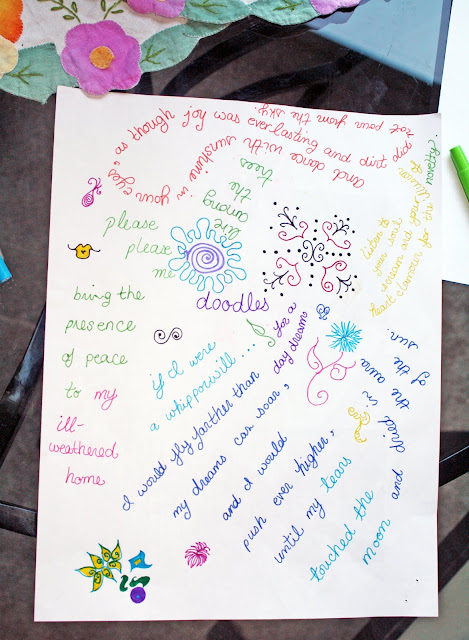 and dance with sunshine in your eyes,
as though joy was everlasting and dirt did
not pour from the sky.
live
among
the
trees
please
please
me
doodles
for a
day dream
listen to
your soul
scream and your
heart clamour for the
flavour of
novelty.
bring the
presence
of peace
to my
ill-
weathered
home
if I were
a whipporwill...
I would fly farther than
my dreams can soar,
and I would
push ever higher,
until my tears
touched the
moon and
dried in the aura
of the sun.